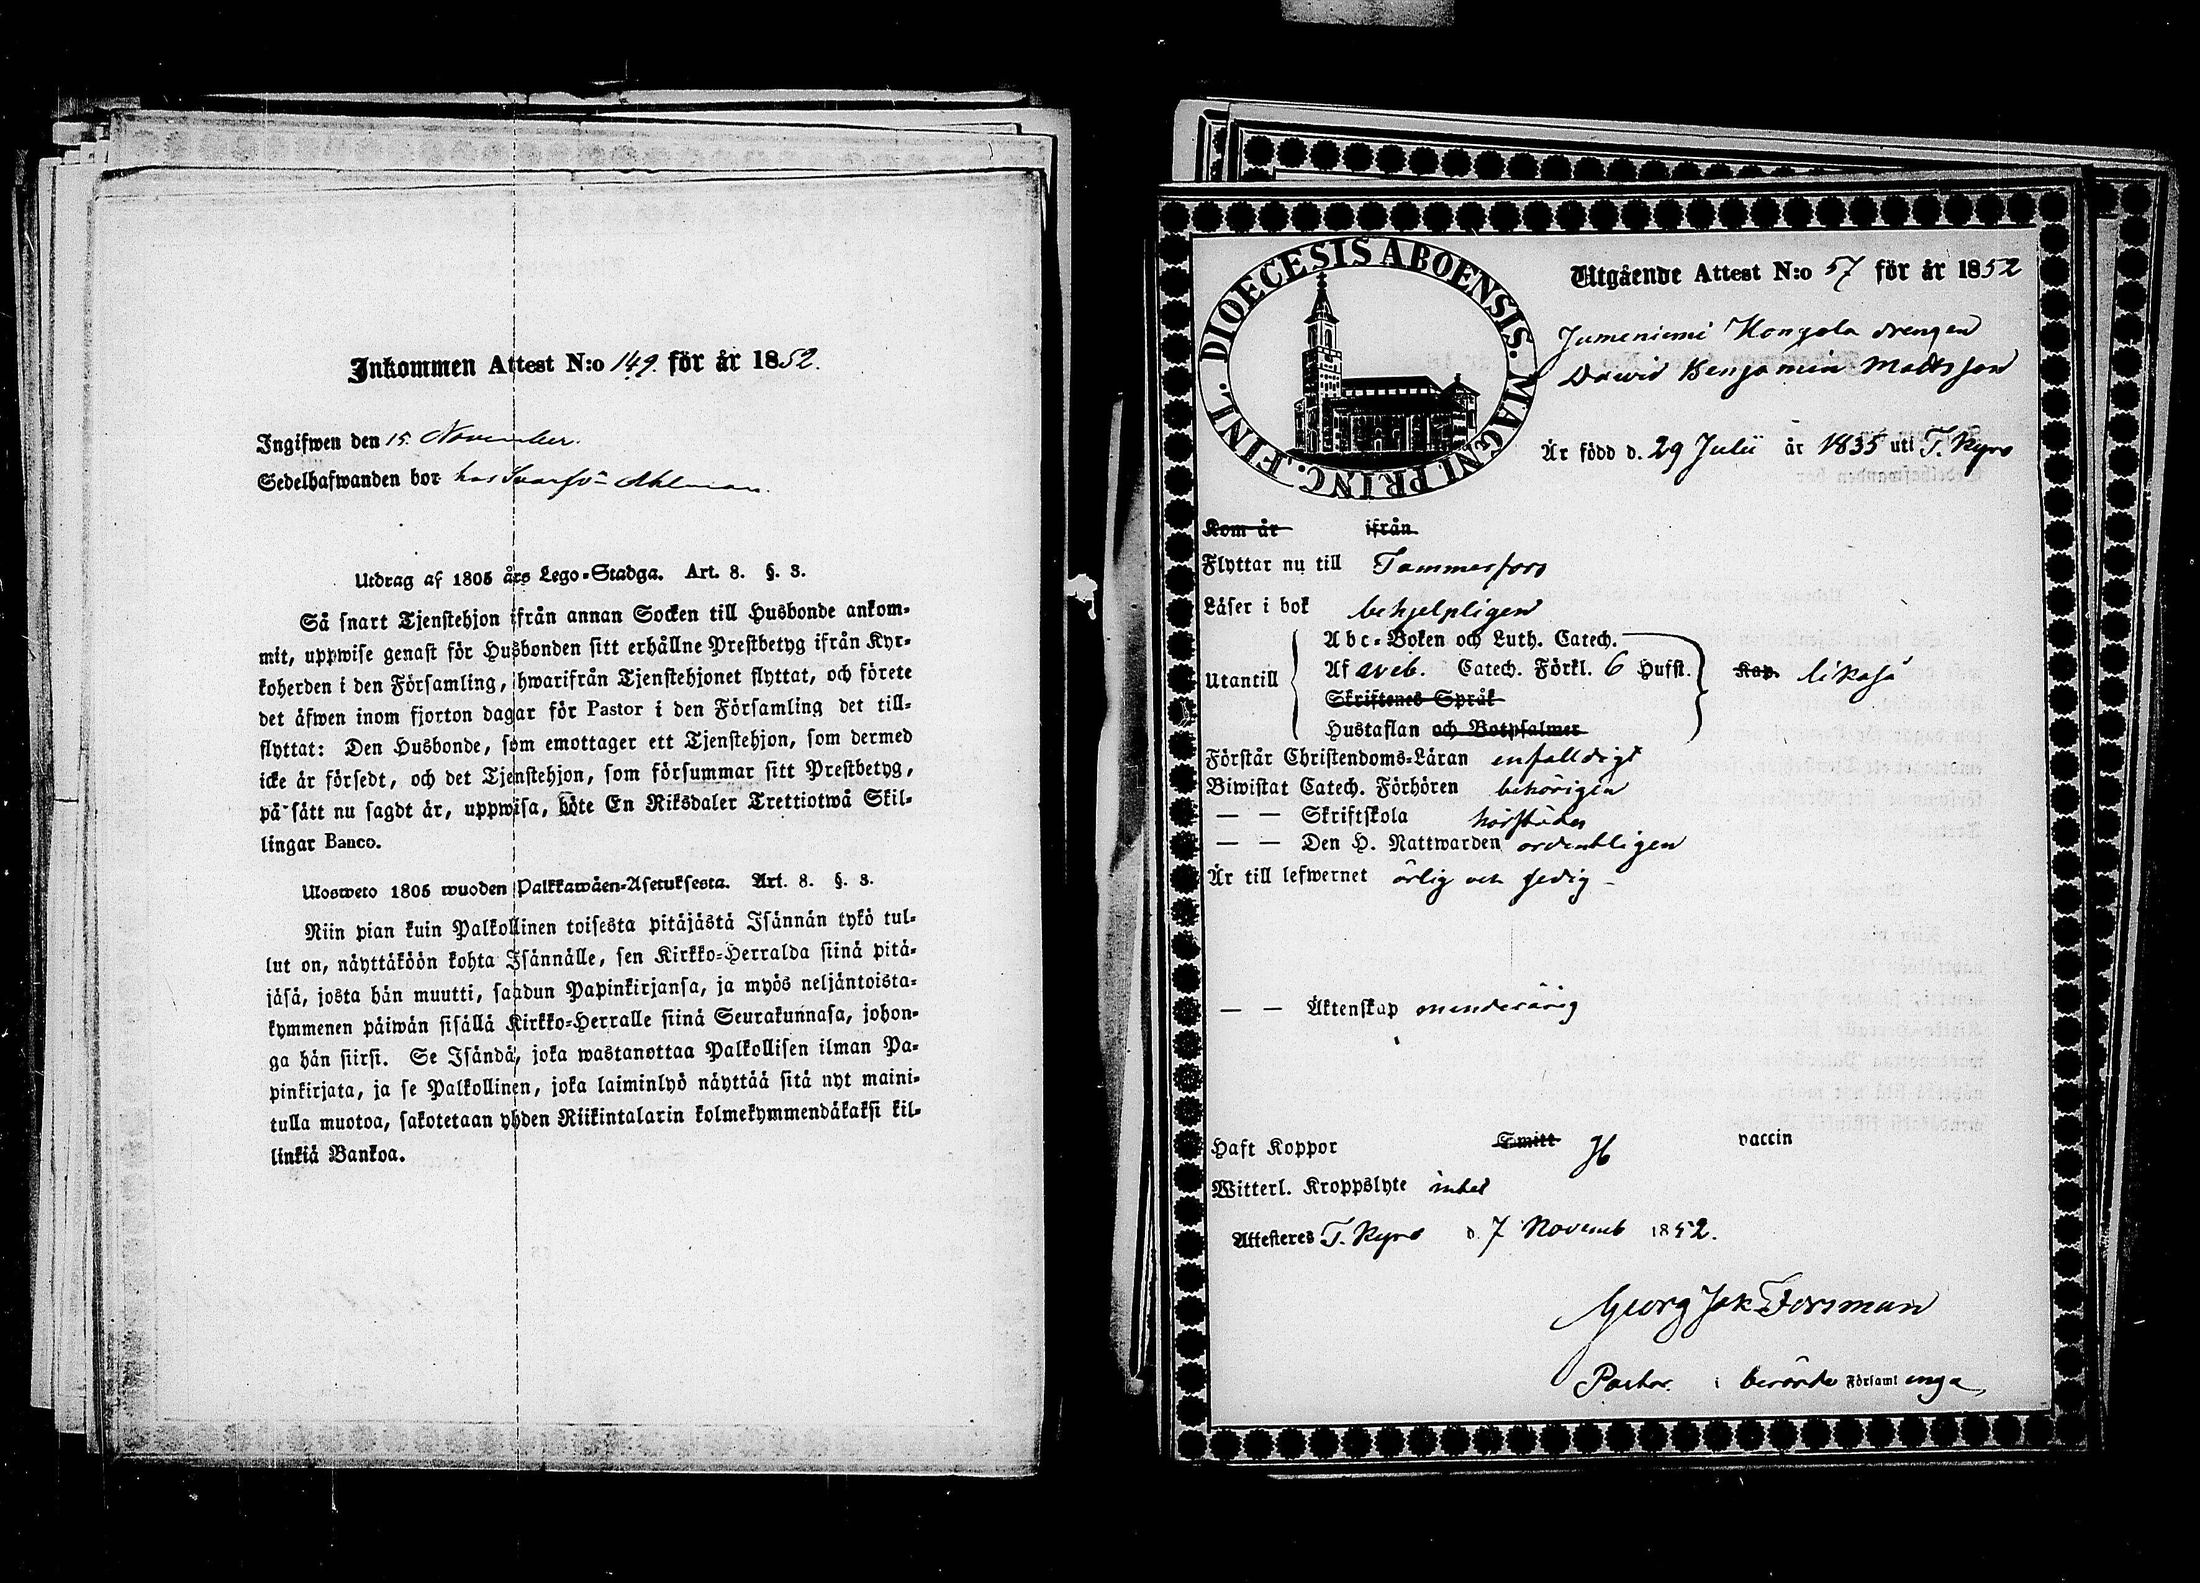 Inkommen Attest N:o 149. för år 1852.
Ingifwen den 15. November.
Sedelhafwanden bor hos Ahlman.
Utdrag af 1805 års Lego-Stadga. Art. 8. §. 3.
Så snart Tjenstehjon ifrån annan Socken till Husbonde ankom-
mit, uppwise genast för Husbonden sitt erhållne Prestbetyg ifrån Kyr-
koherden i den Församling, hwarifrån Tjenstehjonet flyttat, och förete
det äfwen inom fjorton dagar för Pastor i den Församling det till-
flyttat: Den Husbonde, som emottager ett Tjenstehjon, som dermed
icke är försedt, och det Tjenstehjon, som försummar sitt Prestbetyg,
på sätt nu sagdt är, uppwisa, böte En Riksdaler Trettiotwå Skil-
lingar Banco.
Ulosweto 1805 wuoden Palkkawäen-Asetuksesta. Art. 8. §. 3.
Niin pian kuin Palkollinen toisesta pitäjästä Isännän tykö tul-
lut on, näyttäköön kohta Isännälle, sen Kirkko-Herralda siinä pitä-
jäsä, josta hän muutti, saadun Papinkirjansa, ja myös neljäntoista-
kymmenen päiwän sisällä Kirkko-Herralle siinä Seurakunnasa, johon-
ga hän siirsi. Se Isändä, joka wastanottaa Palkollisen ilman Pa-
pinkirjata, ja se Palkollinen, joka laiminlyö näyttää sitä nyt maini-
tulla muotoa, sakotetaan yhden Riikintalarin kolmekymmendäkaksi kil-
linkiä Bankoa.
DIOECESIS ABOENSIS. MAGNI PRINC. FINL.
Utgående Attest N:o 57 för år 1852
Jumeniemi Kongola drengen
David Benjamin Mattsson
Är född d. 29 Julii år 1835 uti T. Kyro
Kom år ifrån
Flyttar nu till Tammerfors
Läser i bok behjelpligen
Utantill
Abc-Boken och Luth. Catech.
Af Sveb. Catech. Förkl. 6 Hufst. Kap. likaså
Skriftenes Språk
Hustaflan och Botpsalmer
Förstår Christendoms-Läran enfalldigt
Biwistat Catech. Förhören behörigen
— — Skriftskola
— — Den H. Nattwarden ordentligen
Är till lefwernet ärlig och sedig -
— — Äktenskap minderårig
Haft Koppor Smitt H vaccin
Witterl. Kroppslyte intet
Attesteres T. Kyro d. 7 Novemb 1852.
Georg Jak Forsman
Pastor. i berörde Församl inga